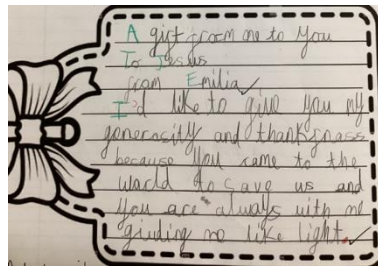 A gift from me to You
To Jesus
from Emilia
I'd like to give you my
generosity and thankgnass
because you came to the
world to save us and
you are always with me
giuding me like light.